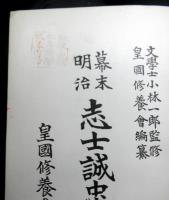 文學士小林一郎監修
皇國修養會編纂
幕末
明治
志士誠忠
皇國修養會